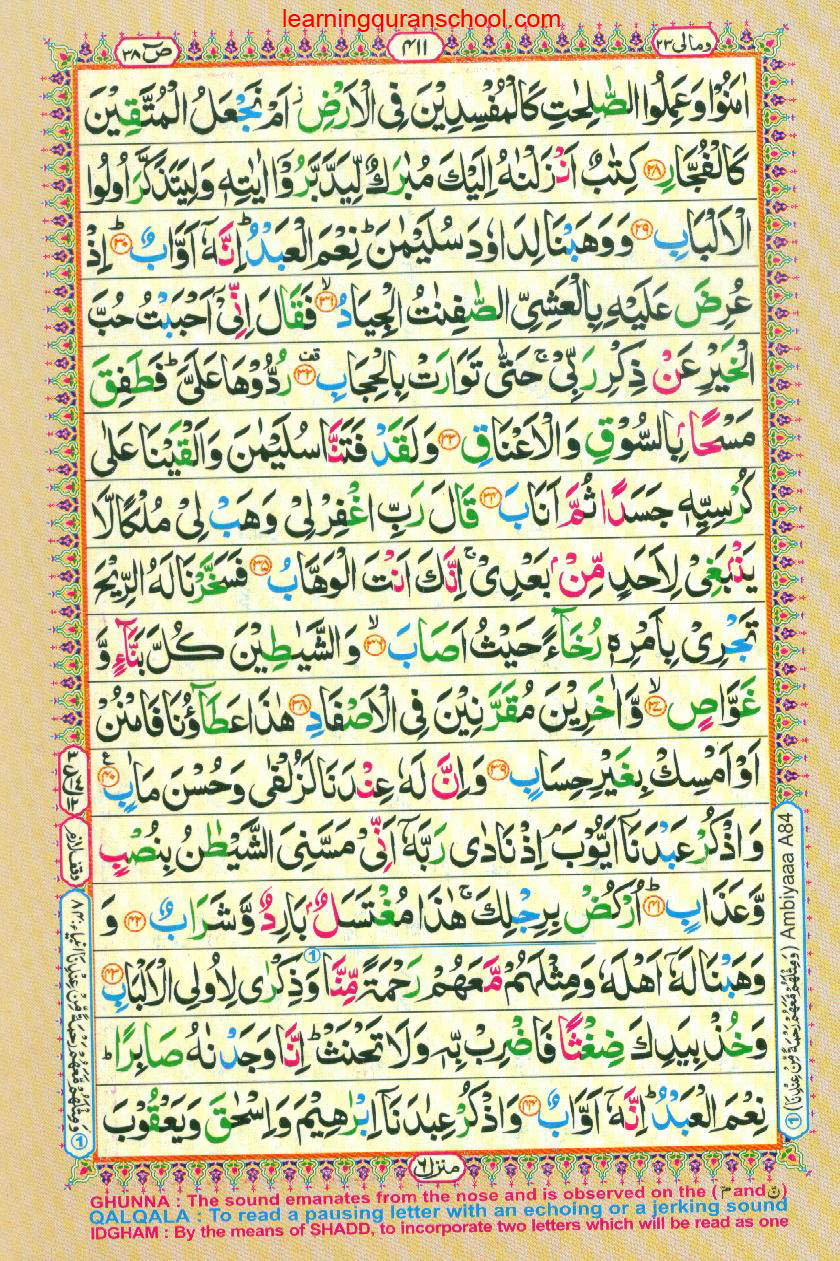 learningquranschool.com
صٓ ٣٨
٤١١
ومالی ٢٣
اٰمَنُوْا وَعَمِلُوا الصّٰلِحٰتِ كَالْمُفْسِدِيْنَ فِى الْاَرْضِ ز اَمْ نَجْعَلُ الْمُتَّقِيْنَ
كَالْفُجَّارِ ﴿٢٨﴾ كِتٰبٌ اَنْزَلْنٰهُ اِلَيْكَ مُبٰرَكٌ لِّيَدَّبَّرُوْۤا اٰيٰتِهٖ وَلِيَتَذَكَّرَ اُولُوا
الْاَلْبَابِ ﴿٢٩﴾ وَوَهَبْنَا لِدَاوٗدَ سُلَيْمٰنَ ؕ نِعْمَ الْعَبْدُ ؕ اِنَّهٗۤ اَوَّابٌ ﴿٣٠﴾ ؕ اِذْ
عُرِضَ عَلَيْهِ بِالْعَشِىِّ الصّٰفِنٰتُ الْجِيَادُ ﴿٣١﴾ ۙ فَقَالَ اِنِّىْۤ اَحْبَبْتُ حُبَّ
الْخَيْرِ عَنْ ذِكْرِ رَبِّىْ ۚ حَتّٰى تَوَارَتْ بِالْحِجَابِ ﴿٣٢﴾ رُدُّوْهَا عَلَىَّ ؕ فَطَفِقَ
مَسْحًۢا بِالسُّوْقِ وَالْاَعْنَاقِ ﴿٣٣﴾ وَلَقَدْ فَتَنَّا سُلَيْمٰنَ وَاَلْقَيْنَا عَلٰى
كُرْسِيِّهٖ جَسَدًا ثُمَّ اَنَابَ ﴿٣٤﴾ قَالَ رَبِّ اغْفِرْ لِىْ وَهَبْ لِىْ مُلْكًا لَّا
يَنْۢبَغِىْ لِاَحَدٍ مِّنْۢ بَعْدِىْ ۚ اِنَّكَ اَنْتَ الْوَهَّابُ ﴿٣٥﴾ فَسَخَّرْنَا لَهُ الرِّيْحَ
تَجْرِىْ بِاَمْرِهٖ رُخَآءً حَيْثُ اَصَابَ ﴿٣٦﴾ ۙ وَالشَّيٰطِيْنَ كُلَّ بَنَّآءٍ وَّ
غَوَّاصٍ ﴿٣٧﴾ ۙ وَّاٰخَرِيْنَ مُقَرَّنِيْنَ فِى الْاَصْفَادِ ﴿٣٨﴾ هٰذَا عَطَآؤُنَا فَامْنُنْ
اَوْ اَمْسِكْ بِغَيْرِ حِسَابٍ ﴿٣٩﴾ وَاِنَّ لَهٗ عِنْدَنَا لَزُلْفٰى وَحُسْنَ مَاٰبٍ ﴿٤٠﴾
وَاذْكُرْ عَبْدَنَاۤ اَيُّوْبَ ۘ اِذْ نَادٰى رَبَّهٗۤ اَنِّىْ مَسَّنِىَ الشَّيْطٰنُ بِنُصْبٍ
وَّعَذَابٍ ﴿٤١﴾ ؕ اُرْكُضْ بِرِجْلِكَ ۚ هٰذَا مُغْتَسَلٌۢ بَارِدٌ وَّشَرَابٌ ﴿٤٢﴾ وَ
وَهَبْنَا لَهٗۤ اَهْلَهٗ وَمِثْلَهُمْ مَّعَهُمْ رَحْمَةً مِّنَّا وَذِكْرٰى لِاُولِى الْاَلْبَابِ ﴿٤٣﴾
وَخُذْ بِيَدِكَ ضِغْثًا فَاضْرِبْ بِّهٖ وَلَا تَحْنَثْ ؕ اِنَّا وَجَدْنٰهُ صَابِرًا ؕ
نِعْمَ الْعَبْدُ ؕ اِنَّهٗۤ اَوَّابٌ ﴿٤٤﴾ وَاذْكُرْ عِبٰدَنَاۤ اِبْرٰهِيْمَ وَاِسْحٰقَ وَيَعْقُوْبَ
① (وَمِثْلَهُمْ مَّعَهُمْ رَحْمَةً مِّنْ عِنْدِنَا) Ambiyaaa A84
منزل ٦
GHUNNA : The sound emanates from the nose and is observed on the (مّ and نّ)
QALQALA : To read a pausing letter with an echoing or a jerking sound
IDGHAM : By the means of SHADD, to incorporate two letters which will be read as one